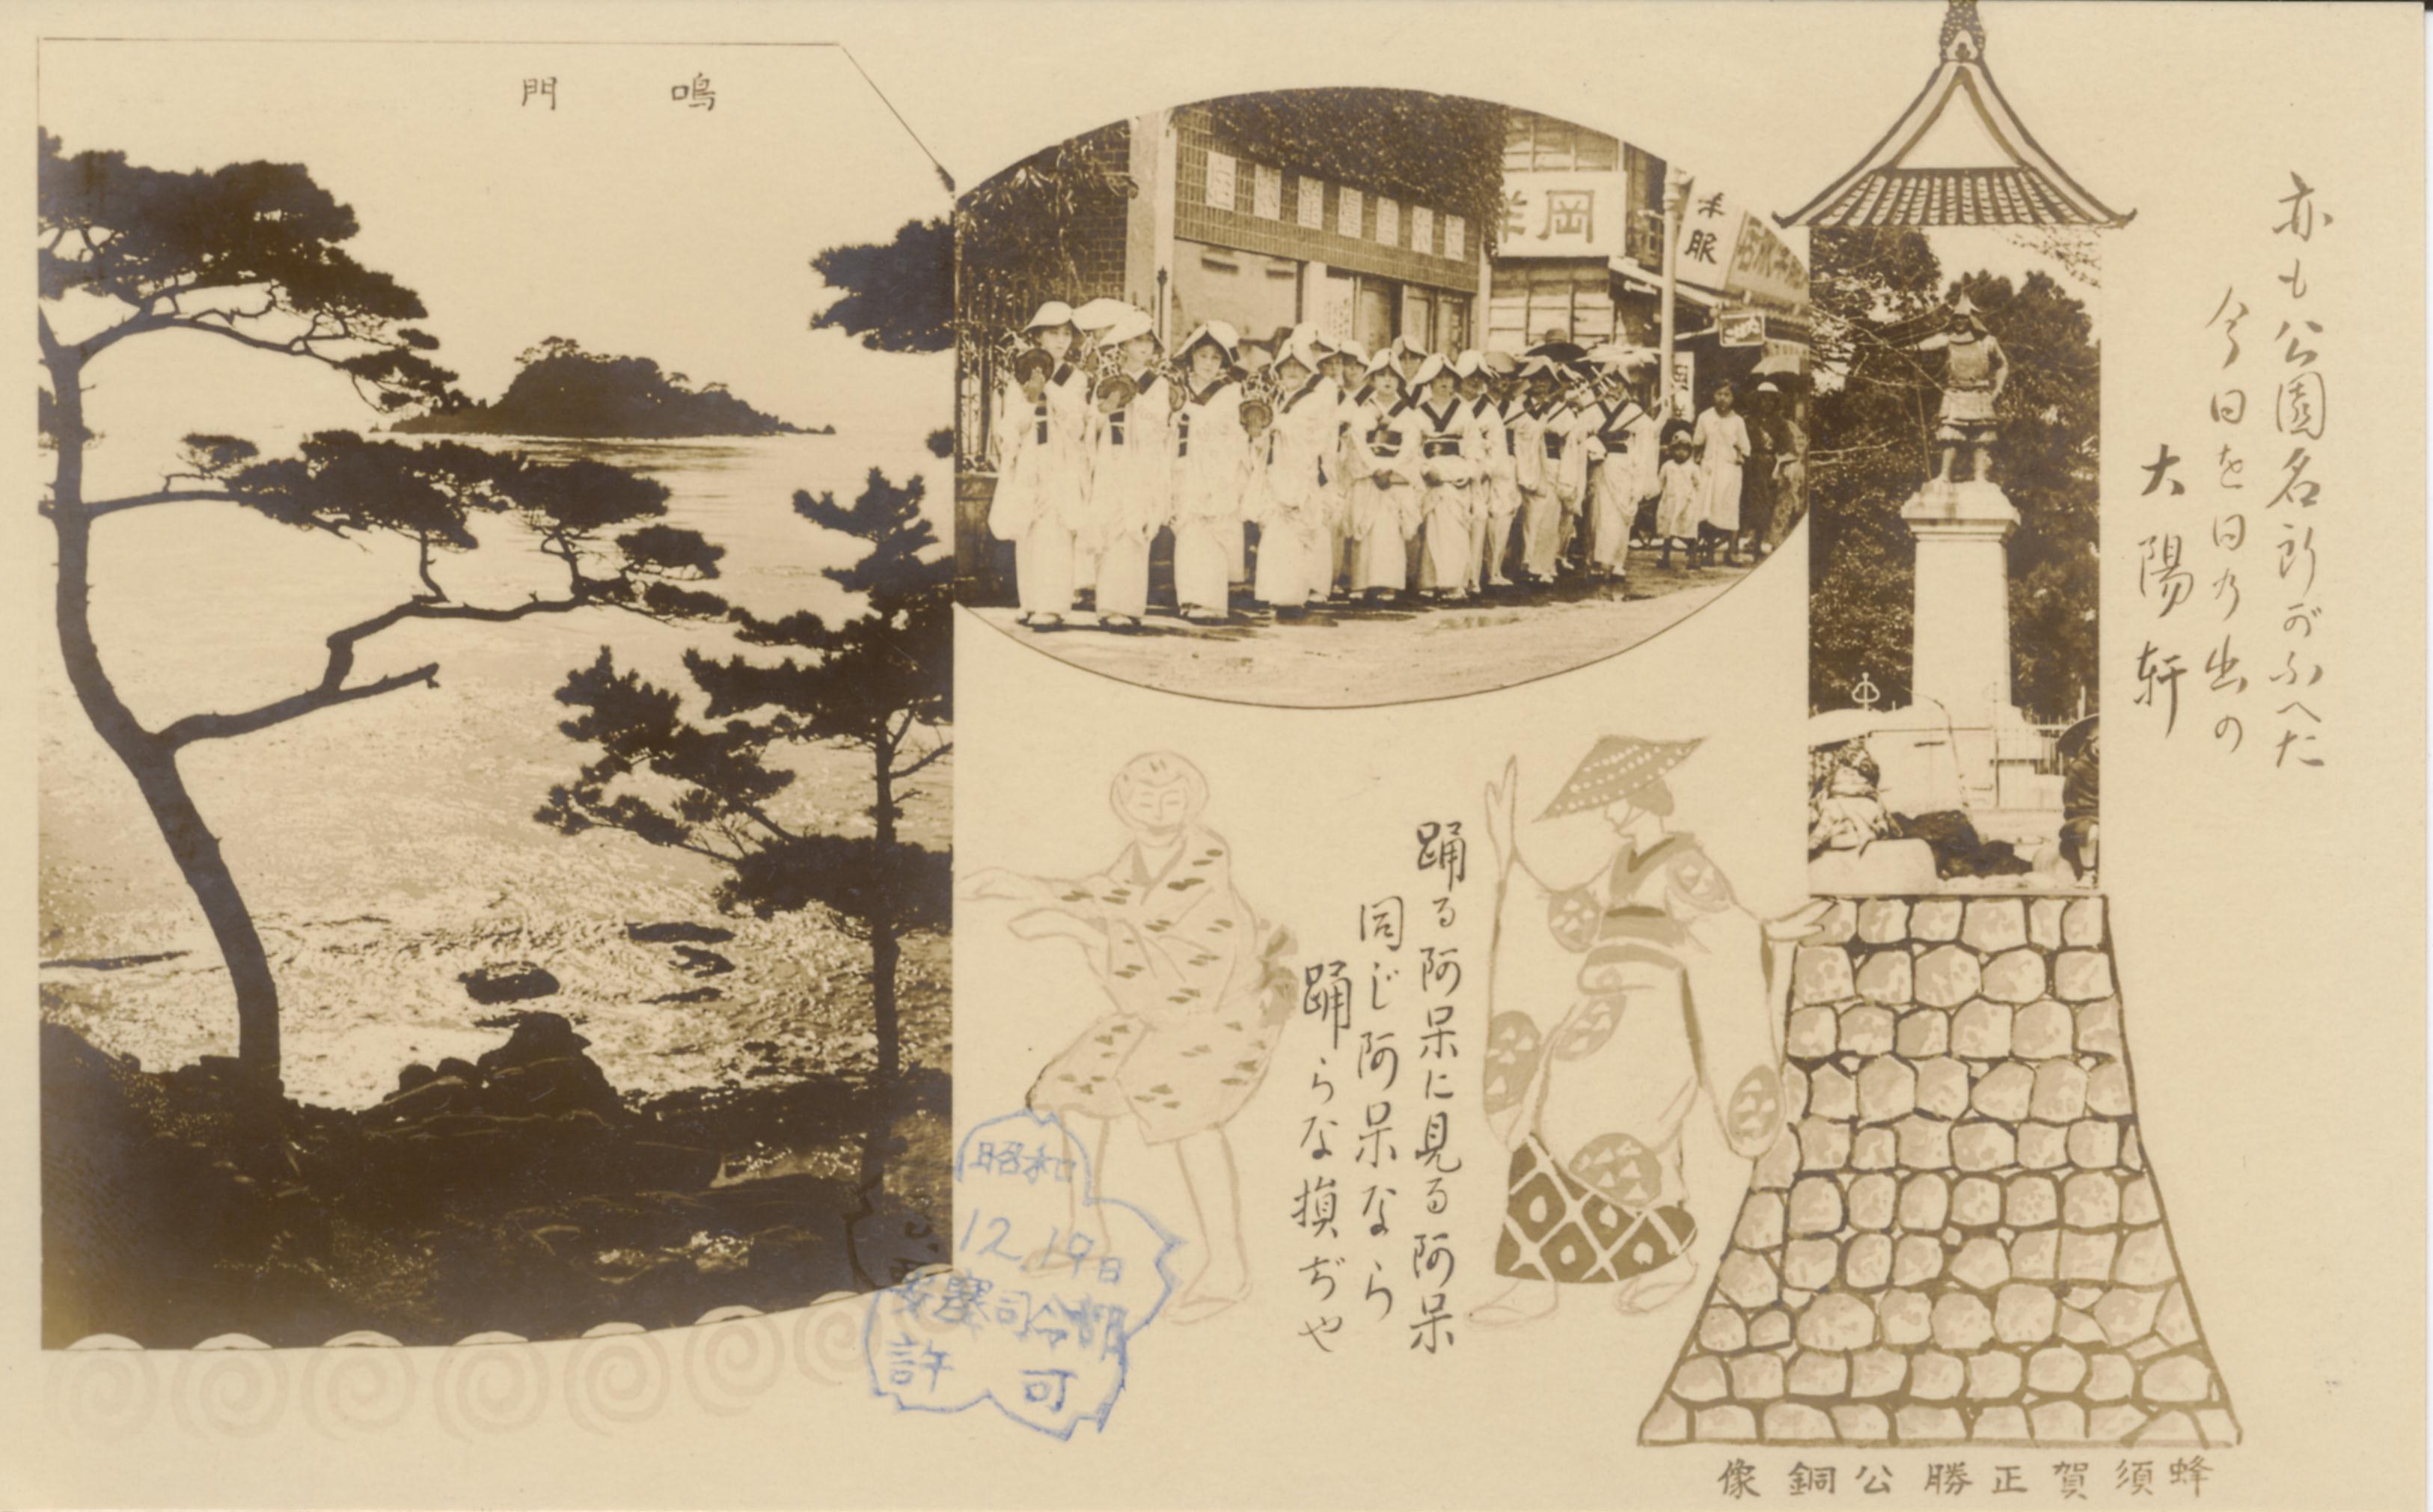 鳴門
亦も公園名所がふへた
今日を日乃出の
大陽軒
踊る阿呆に見る阿呆
同じ阿呆なら
踊らな損ぢや
昭和
12.19日
要塞司令部
許可
蜂須賀正勝公銅像
岡
服